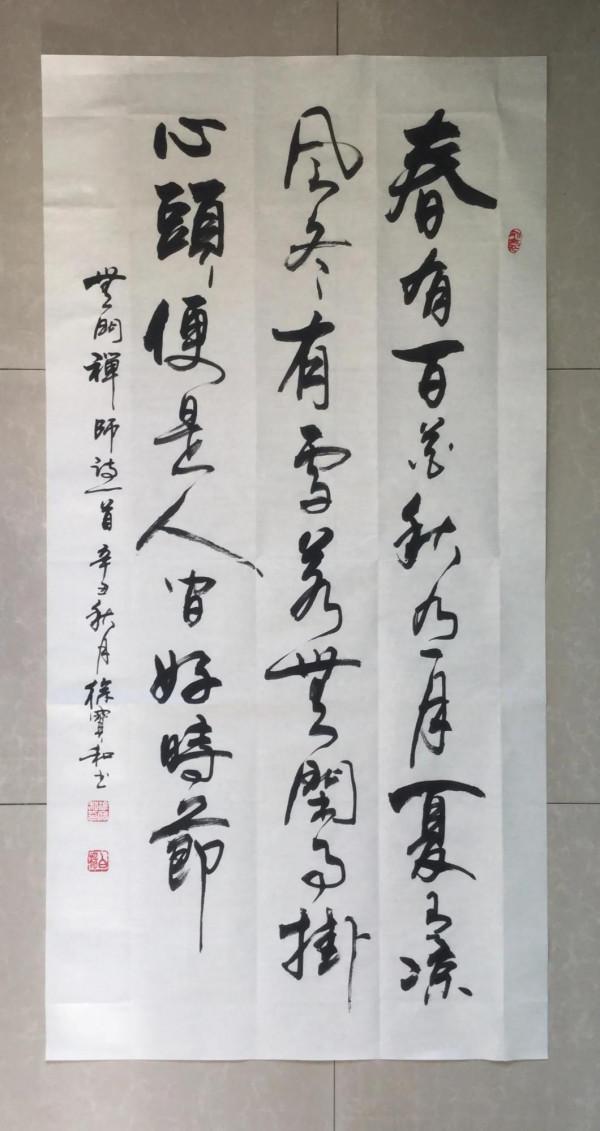 春有百花秋有月夏有涼
風冬有雪若無閑事掛
心頭便是人间好時節
無門禪師诗一首 辛丑秋月 徐寶和书